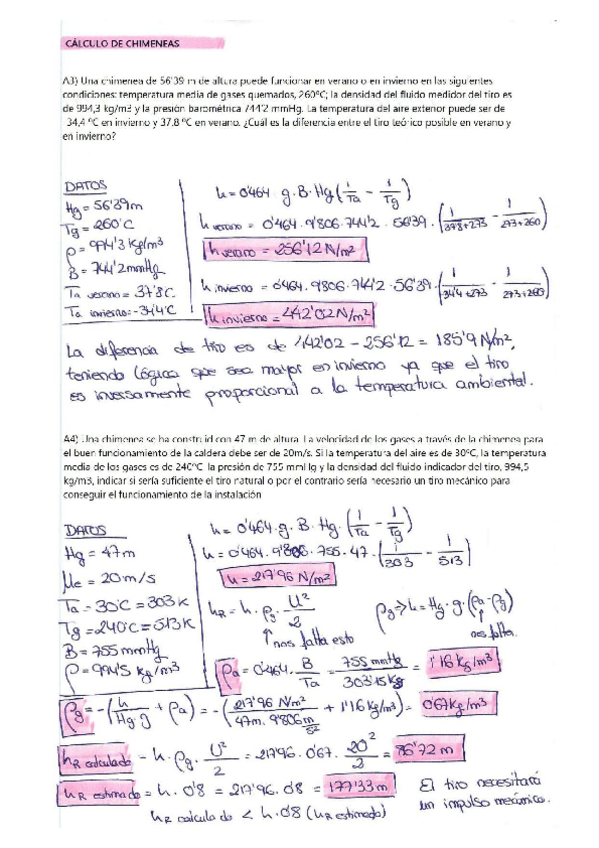 CÁLCULO DE CHIMENEAS
A3) Una chimenea de 56'39 m de altura puede funcionar en verano o en invierno en las siguientes
condiciones: temperatura media de gases quemados, 260ºC; la densidad del fluido medidor del tiro es
de 994,3 kg/m3 y la presión barométrica 744'2 mmHg. La temperatura del aire exterior puede ser de
-34,4 ºC en invierno y 37,8 ºC en verano. ¿Cuál es la diferencia entre el tiro teórico posible en verano y
en invierno?
DATOS
Hg = 56'39m
Tg = 260ºC
ρ = 994'3 Kg/m³
B = 744'2 mmHg
Ta verano = 37'8ºC
Ta invierno = -34'4ºC
h = 0'464 · g · B · Hg (1/Ta - 1/Tg)
h verano = 0'464 · 9'806 · 744'2 · 56'39 · (1/37'8+273 - 1/273+260)
h verano = 256'12 N/m²
h invierno = 0'464 · 9'806 · 744'2 · 56'39 · (1/-34'4+273 - 1/273+260)
h invierno = 442'02 N/m²
La diferencia de tiro es de 442'02 - 256'12 = 185'9 N/m²,
teniendo lógica que sea mayor en invierno ya que el tiro
es inversamente proporcional a la temperatura ambiental.
A4) Una chimenea se ha construido con 47 m de altura. La velocidad de los gases a través de la chimenea para
el buen funcionamiento de la caldera debe ser de 20m/s. Si la temperatura del aire es de 30ºC, la temperatura
media de los gases es de 240ºC la presión de 755 mmHg y la densidad del fluido indicador del tiro, 994,5
kg/m3, indicar si sería suficiente el tiro natural o por el contrario sería necesario un tiro mecánico para
conseguir el funcionamiento de la instalación
DATOS
Hg = 47m
μc = 20m/s
Ta = 30ºC = 303K
Tg = 240ºC = 513K
B = 755 mmHg
ρ = 994'5 kg/m³
h = 0'464 · g · B · Hg · (1/Ta - 1/Tg)
h = 0'464 · 9'806 · 755 · 47 · (1/303 - 1/513)
h = 217'96 N/m²
hR = h · ρg · U²/2
↑ nos falta esto
ρg ⇒ h = Hg · g · (ρa - ρg)
nos falta.
ρa = 0'464 · B/Ta = 755 mmHg/303'15K = 1'16 kg/m³
ρg = -(h/Hg·g + ρa) = -(217'96 N/m²/47m · 9'806 m/s² + 1'16 kg/m³) = 0'67 kg/m³
hR calculado = h · ρg · U²/2 = 217'96 · 0'67 · 20²/2 = 86'72 m
hR estimado = h · 0'8 = 217'96 · 0'8 = 177'33 m
El tiro necesitará
un impulso mecánico.
hR calculado < h · 0'8 (hR estimado)